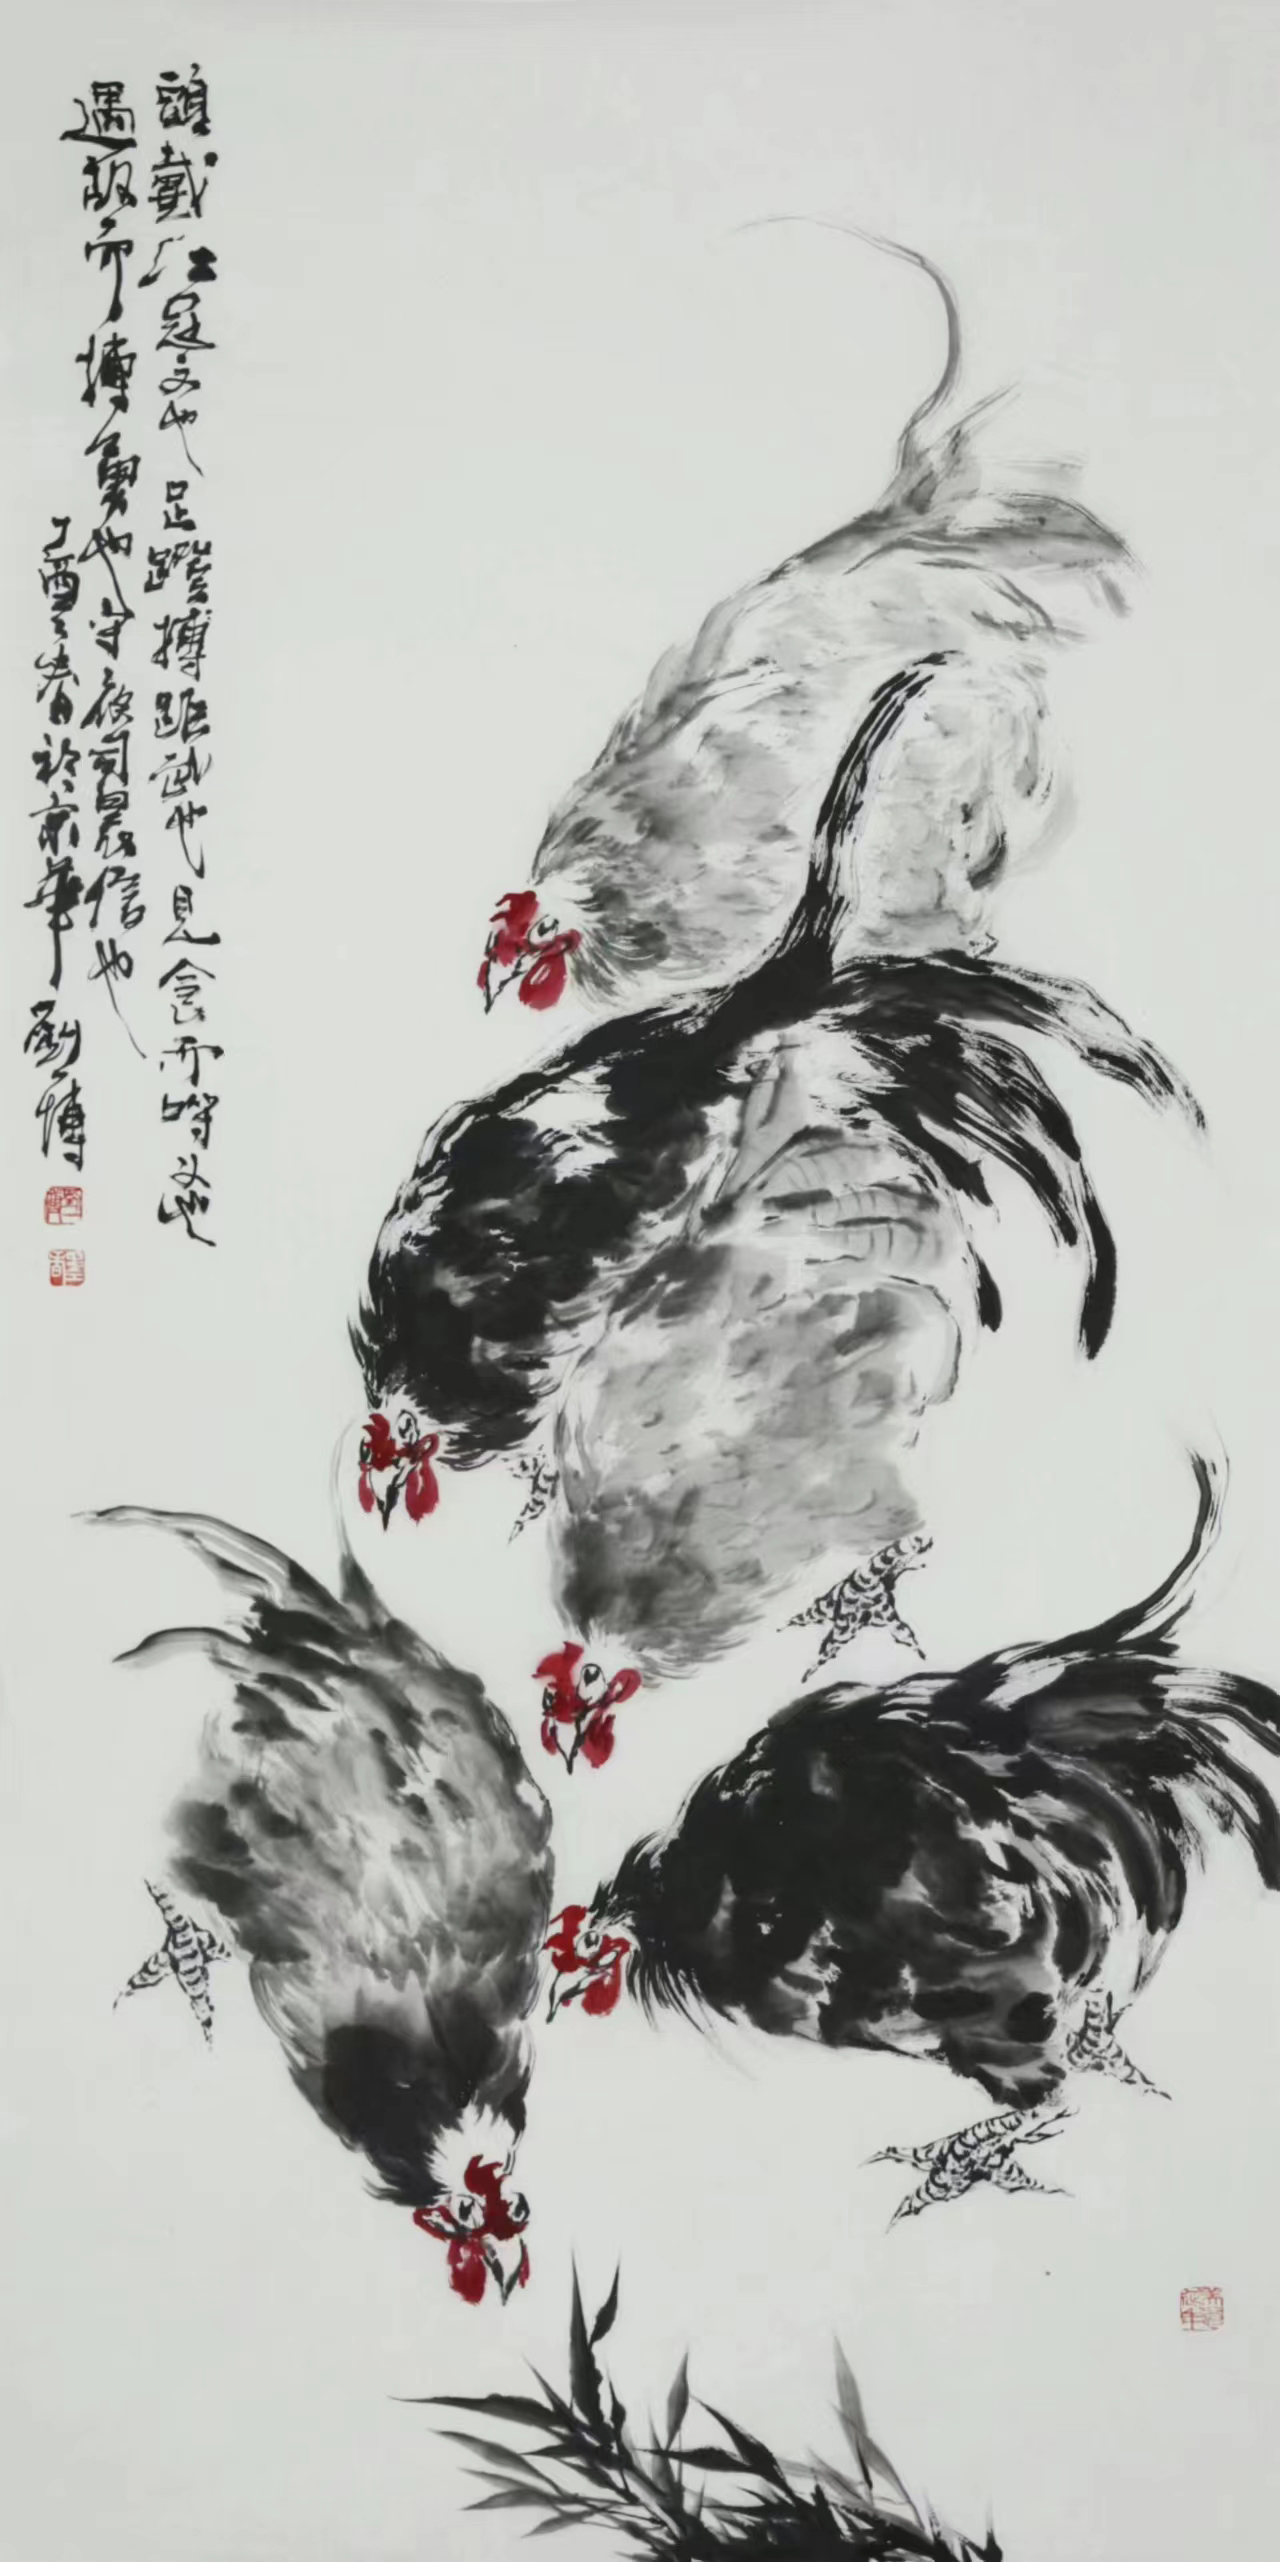 頭戴红冠文也足蹬搏距武也見食而呼义也
遇敌而搏勇也守夜司晨信也
丁酉之春於京華劉博